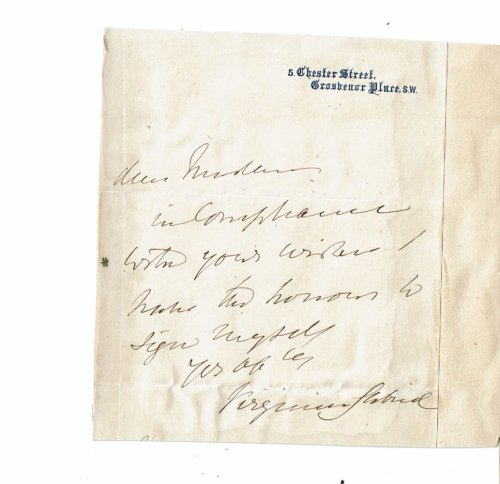 5. Chester Street,
Grosvenor Place, S.W.
dear Madam
in Compliance
with your wishes I
have the honour to
sign myself
Yrs
Virginia Gabriel